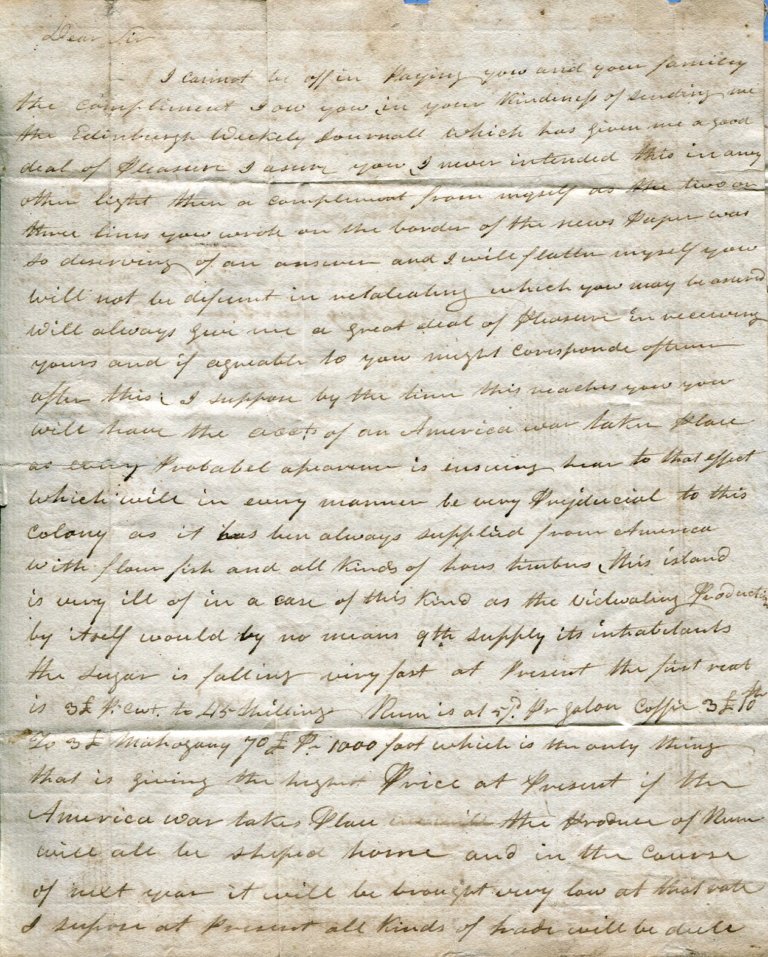 Dear Sir
I cannot be off in Paying you and your family
the compliment I ow you in your Kindeness of sending me
the Edinburgh Weekely Journall which has given me a good
deal of Pleasure I asure you I never intended this in any
other light then a complement from myself as the two or
three lines you wrote on the border of the news Paper was
so deserving of an answer and I will flatter myself you
will not be in retaleating which you may be asured
will always give me a great deal of Pleasure in receiving
yours and if agreable to you might coresponde oftener
after this I suppose by the time this reaches you you
will have the accts of an America war taken Place
as every Probabel apearence is ensuing hear to that effect
which will in every manner be very Prejducial to this
colony as it has ben always supplied from America
with flour fish and all Kinds of hous timbers this island
is very ill of in a case of this Kind as the vidwaling Production
by itself would by no means supply its inhabitants
the sugar is falling very fast at Present the first reat
is 3£ Pr Cwt. to 45 Shillings Rum is at Pr galon Coffie 3£ 10
To 3£ Mahogany 70£ Pr 1000 foot which is the only thing
that is giving the highest Price at Present if the
America war takes Place the Produce of Rum
will all be shiped home and in the course
of next year it will be brought very low at that rate
I supose at Present all Kinds of trade will be dull